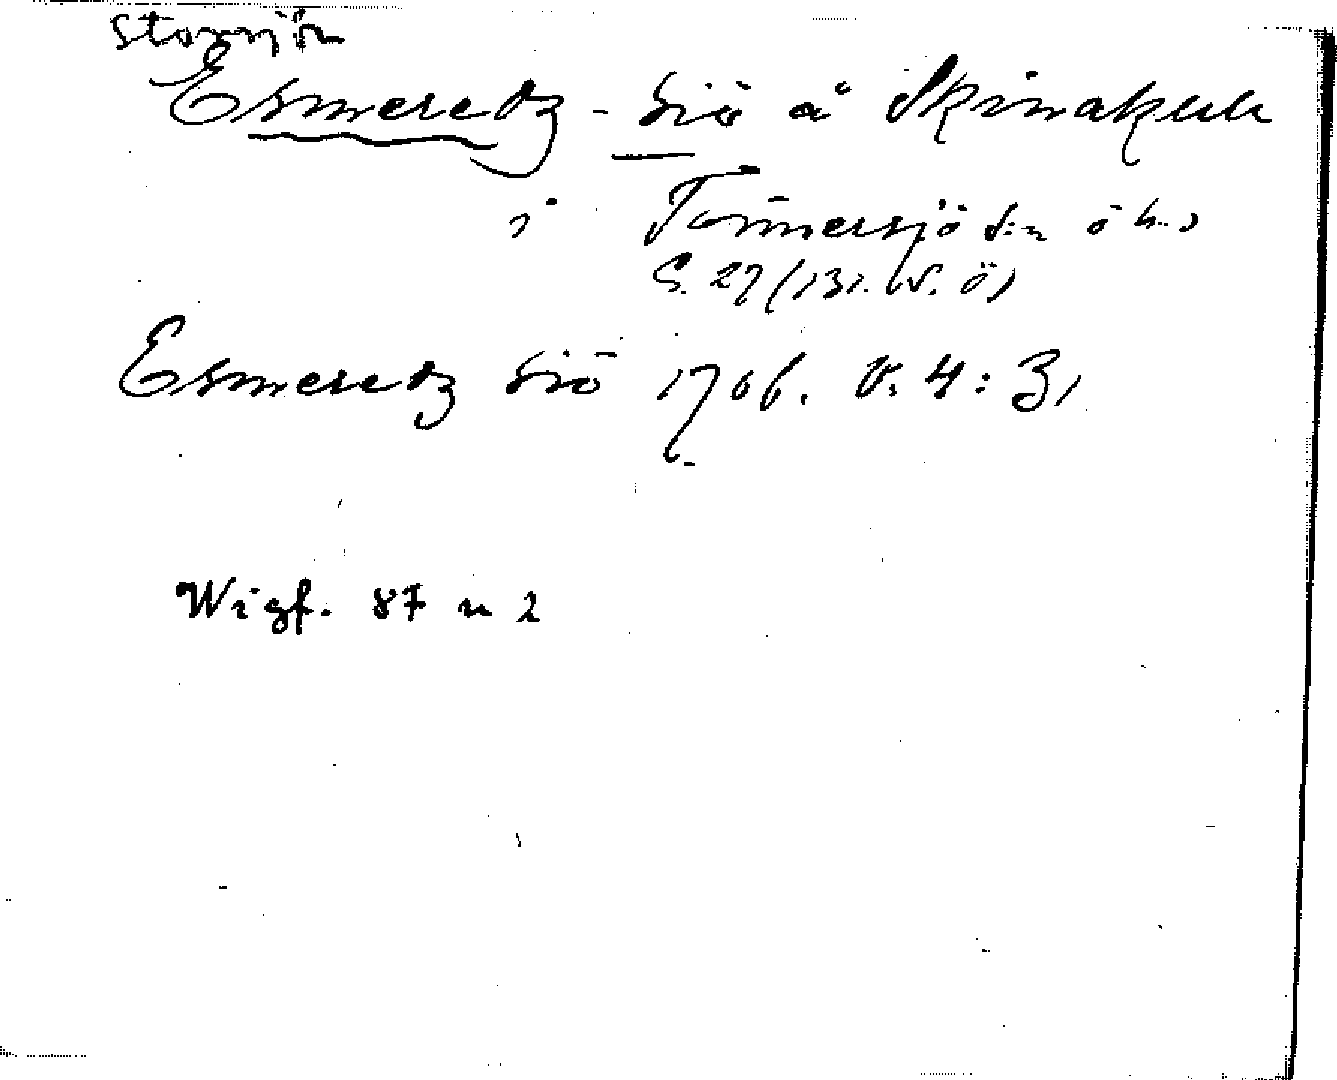 Storsjön
Esmeredz - siö å Skinakull
i Tönnersjö s:n ö h.
S. 27 (131. V. ö)
Esmeredz siö 1706. V. 4: 31
Wigf. 87 n 2